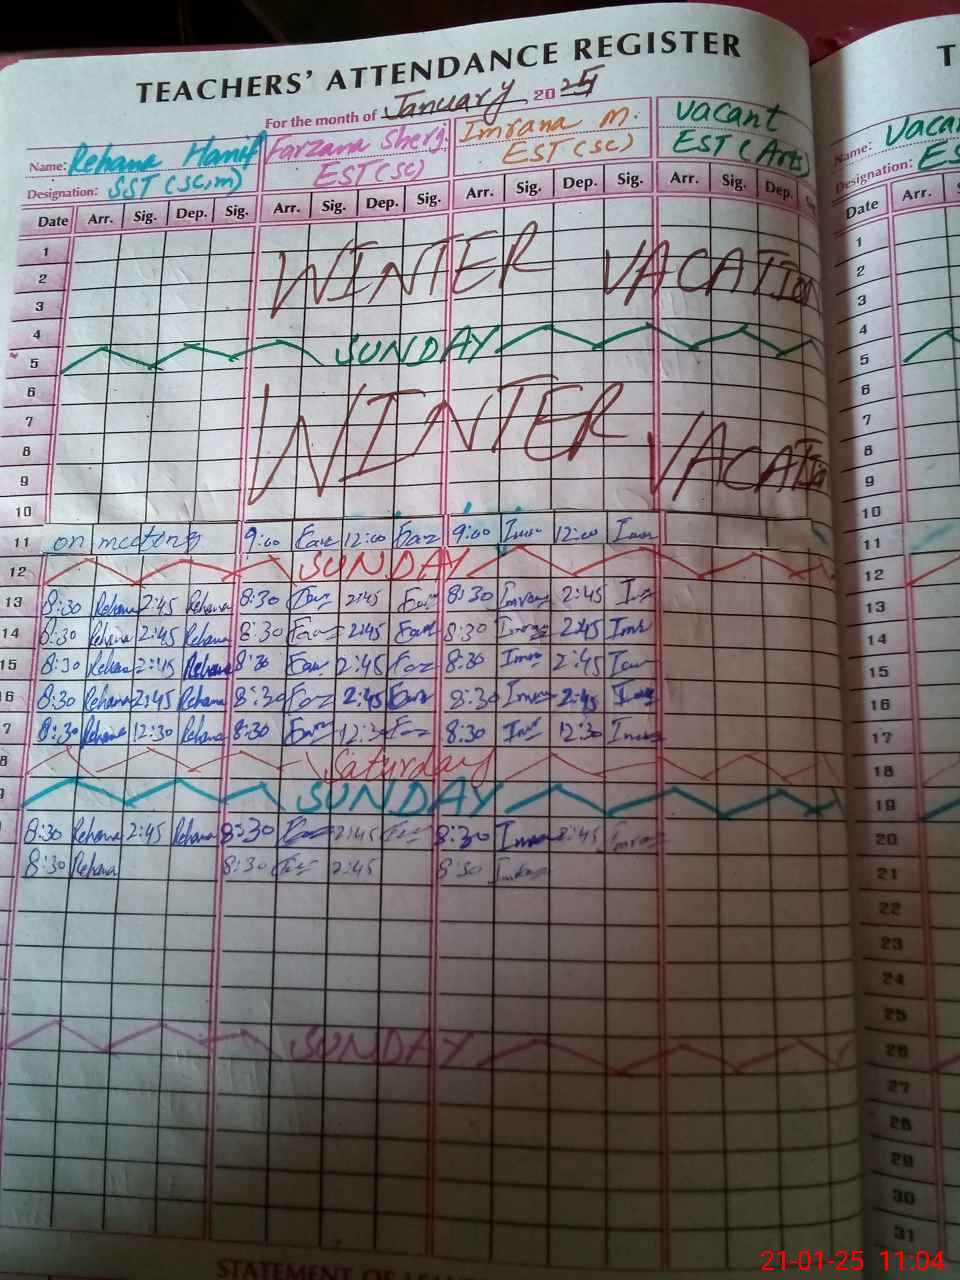 TEACHERS' ATTENDANCE REGISTER
For the month of January 2025
Name: Rehana Hanif Farzana Sherg. Imrana M. Vacant
Designation: SST (SC,M) EST (SC) EST (SC) EST (Arts)
Date Arr. Sig. Dep. Sig. Arr. Sig. Dep. Sig. Arr. Sig. Dep. Sig. Arr. Sig. Dep.
1
2 WINTER VACATION
3
4
5 SUNDAY
6
7
8 WINTER VACATION
9
10
11 on meeting 9:00 Faz 12:00 Faz 9:00 Imr 12:00 Imr
12 SUNDAY
13 8:30 Rehana 2:45 Rehana 8:30 2:45 8:30 Imran 2:45
14 8:30 Rehana 2:45 Rehana 8:30 2:45 8:30 2:45 Imr
15 8:30 Rehana 2:45 Rehana 8:30 2:45 Faz 8:30 2:45
16 8:30 Rehana 2:45 Rehana 8:30 Faz 2:45 8:30 2:45
17 8:30 Rehana 12:30 Rehana 8:30 12:30 8:30 12:30
18 Saturday
19 SUNDAY
8:30 Rehana 2:45 Rehana 8:30 2:45 8:30 2:45 20
8:30 Rehana 8:30 2:45 8:30 21
22
23
24
25
SUNDAY 26
27
28
29
30
31
Name: Vacan
Designation: ES
Date Arr.
1
2
3
4
5
6
7
8
9
10
11
12
13
14
15
16
17
18
19
STATEMENT OF
21-01-25 11:04